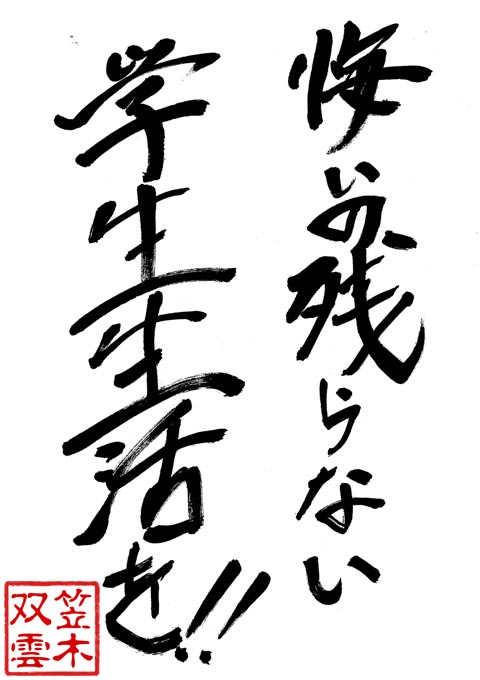 悔いの残らない
学生生活を!!
笠木
双雲